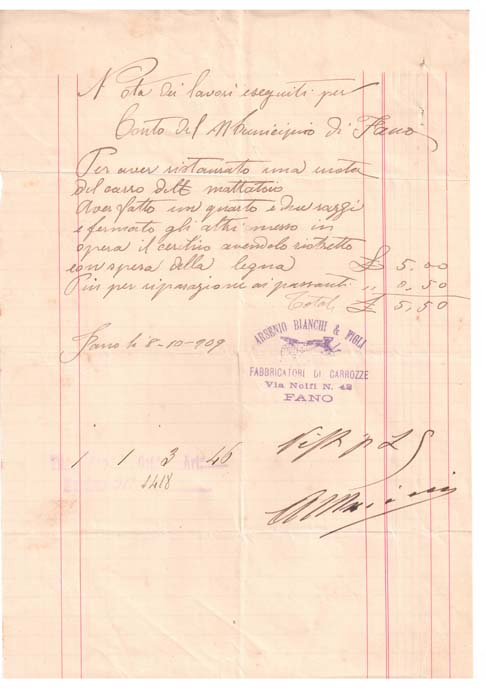 Nota dei lavori eseguiti per
Conto del Municipio di Fano
Per aver ristaurato una ruota
del carro dell mattatoio
Aver fatto un quarto e due raggi
e fermato gli altri messo in
opera il cerchio avendolo ristretto
con spesa della legna £ 5,00
Più per riparazione ai passanti " 0,50
Total, £ 5,50
Fano li 8-10-909
ARSENIO BIANCHI & FIGLI
FABBRICATORI DI CARROZZE
Via Nolfi N. 42
FANO
1 1 3 46
1418